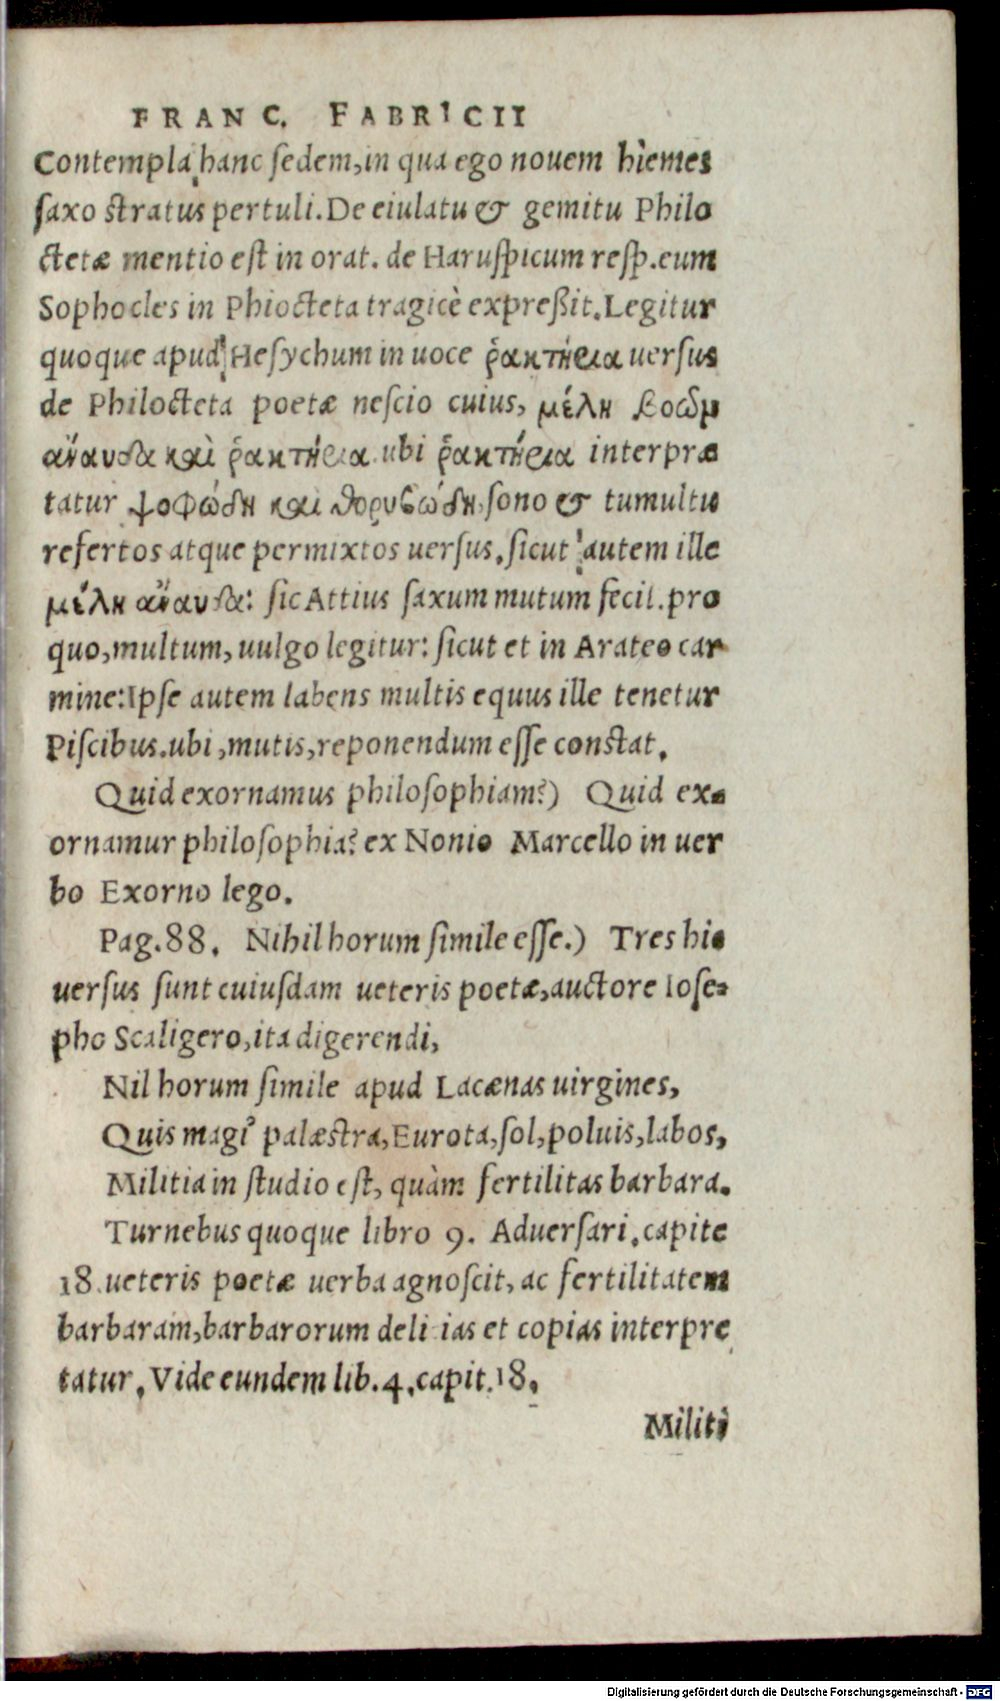 FRANC. FABRICII
Contempla hanc sedem, in qua ego nouem hiemes
saxo stratus pertuli. De eiulatu & gemitu Philo
ctetæ mentio est in orat. de Haruspicum resp. eum
Sophocles in Phiocteta tragicè expreßit. Legitur
quoque apud Hesychum in uoce ῥακτήεια uersus
de Philocteta poetæ nescio cuius, μέλη βοῶμ
ἄναυδα καὶ ῥακτήεια. ubi ῥακτήεια interpræ
tatur ψοφώδη και θορυβώδη, sono & tumultu
refertos atque permixtos uersus, sicut autem ille
μέλη ἄναυδα: sic Attius saxum mutum fecit. pro
quo, multum, uulgo legitur: sicut et in Arateo car
mine: Ipse autem labens multis equus ille tenetur
Piscibus. ubi, mutis, reponendum esse constat.
Quid exornamus philosophiam?) Quid ex=
ornamur philosophia? ex Nonio Marcello in uer
bo Exorno lego.
Pag. 88. Nihil horum simile esse.) Tres hi
uersus sunt cuiusdam ueteris poetæ, auctore Iose=
pho Scaligero, ita digerendi,
Nil horum simile apud Lacænas uirgines,
Quis magi' palæstra, Eurota, sol, poluis, labos,
Militia in studio est, quàm fertilitas barbara.
Turnebus quoque libro 9. Aduersari. capite
18. ueteris poetæ uerba agnoscit, ac fertilitatem
barbaram, barbarorum deli ias et copias interpre
tatur. Vide eundem lib. 4. capit. 18.
Militi
Digitalisierung gefördert durch die Deutsche Forschungsgemeinschaft - DFG